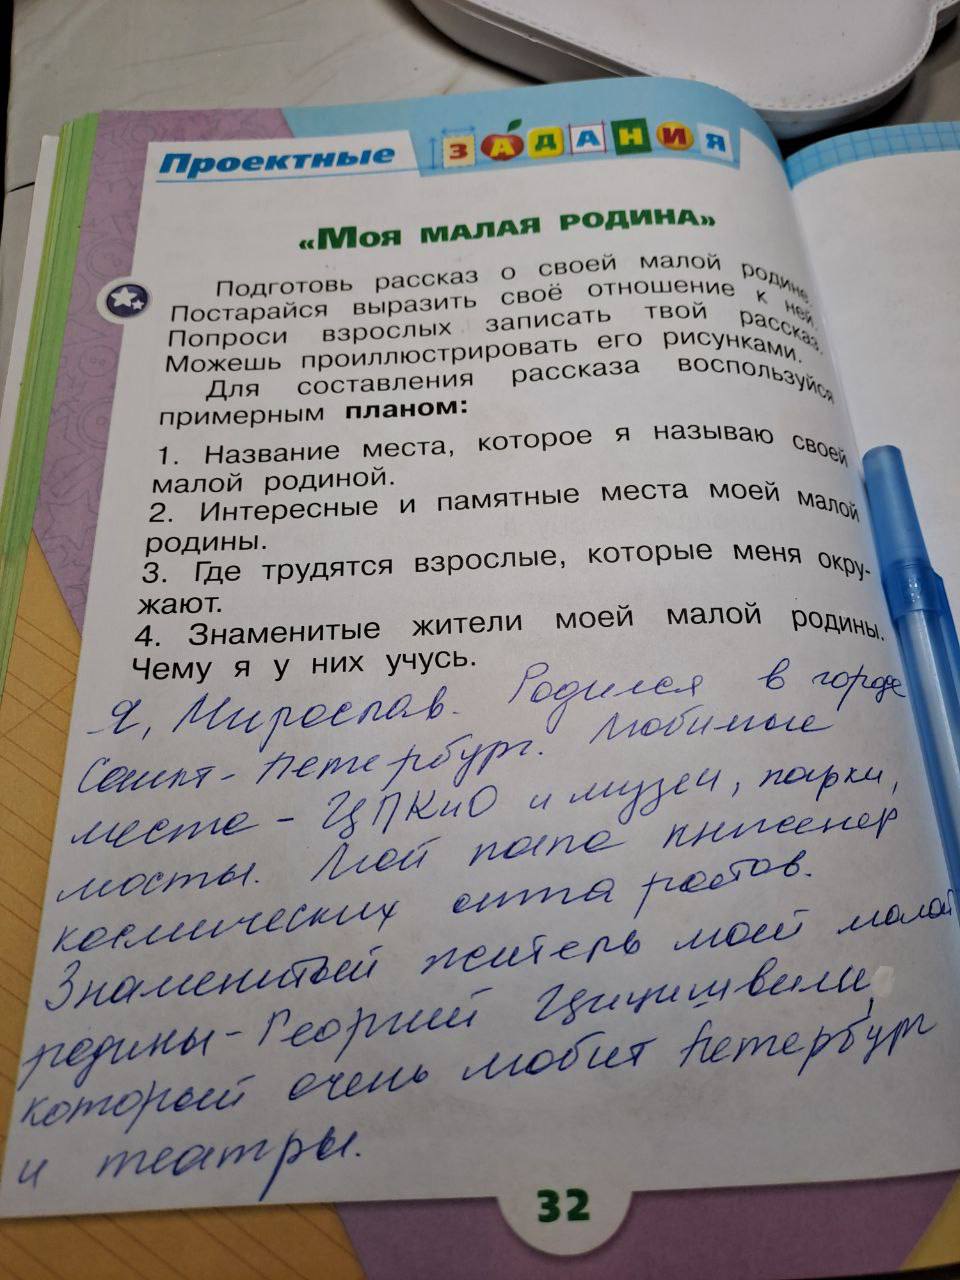 Проектные ЗАДАНИЯ
«Моя малая родина»
Подготовь рассказ о своей малой родине.
Постарайся выразить своё отношение к ней.
Попроси взрослых записать твой рассказ.
Можешь проиллюстрировать его рисунками.
Для составления рассказа воспользуйся
примерным планом:
1. Название места, которое я называю своей
малой родиной.
2. Интересные и памятные места моей малой
родины.
3. Где трудятся взрослые, которые меня окру-
жают.
4. Знаменитые жители моей малой родины.
Чему я у них учусь.
Я, Мирослав. Родился в городе
Санкт-Петербург. Любимые
места - ЦПКиО и музеи, парки,
мосты. Мой папа инженер
космических аппаратов.
Знаменитый житель моей малой
родины - Георгий Цицишвили,
который очень любит Петербург
и театры.
32